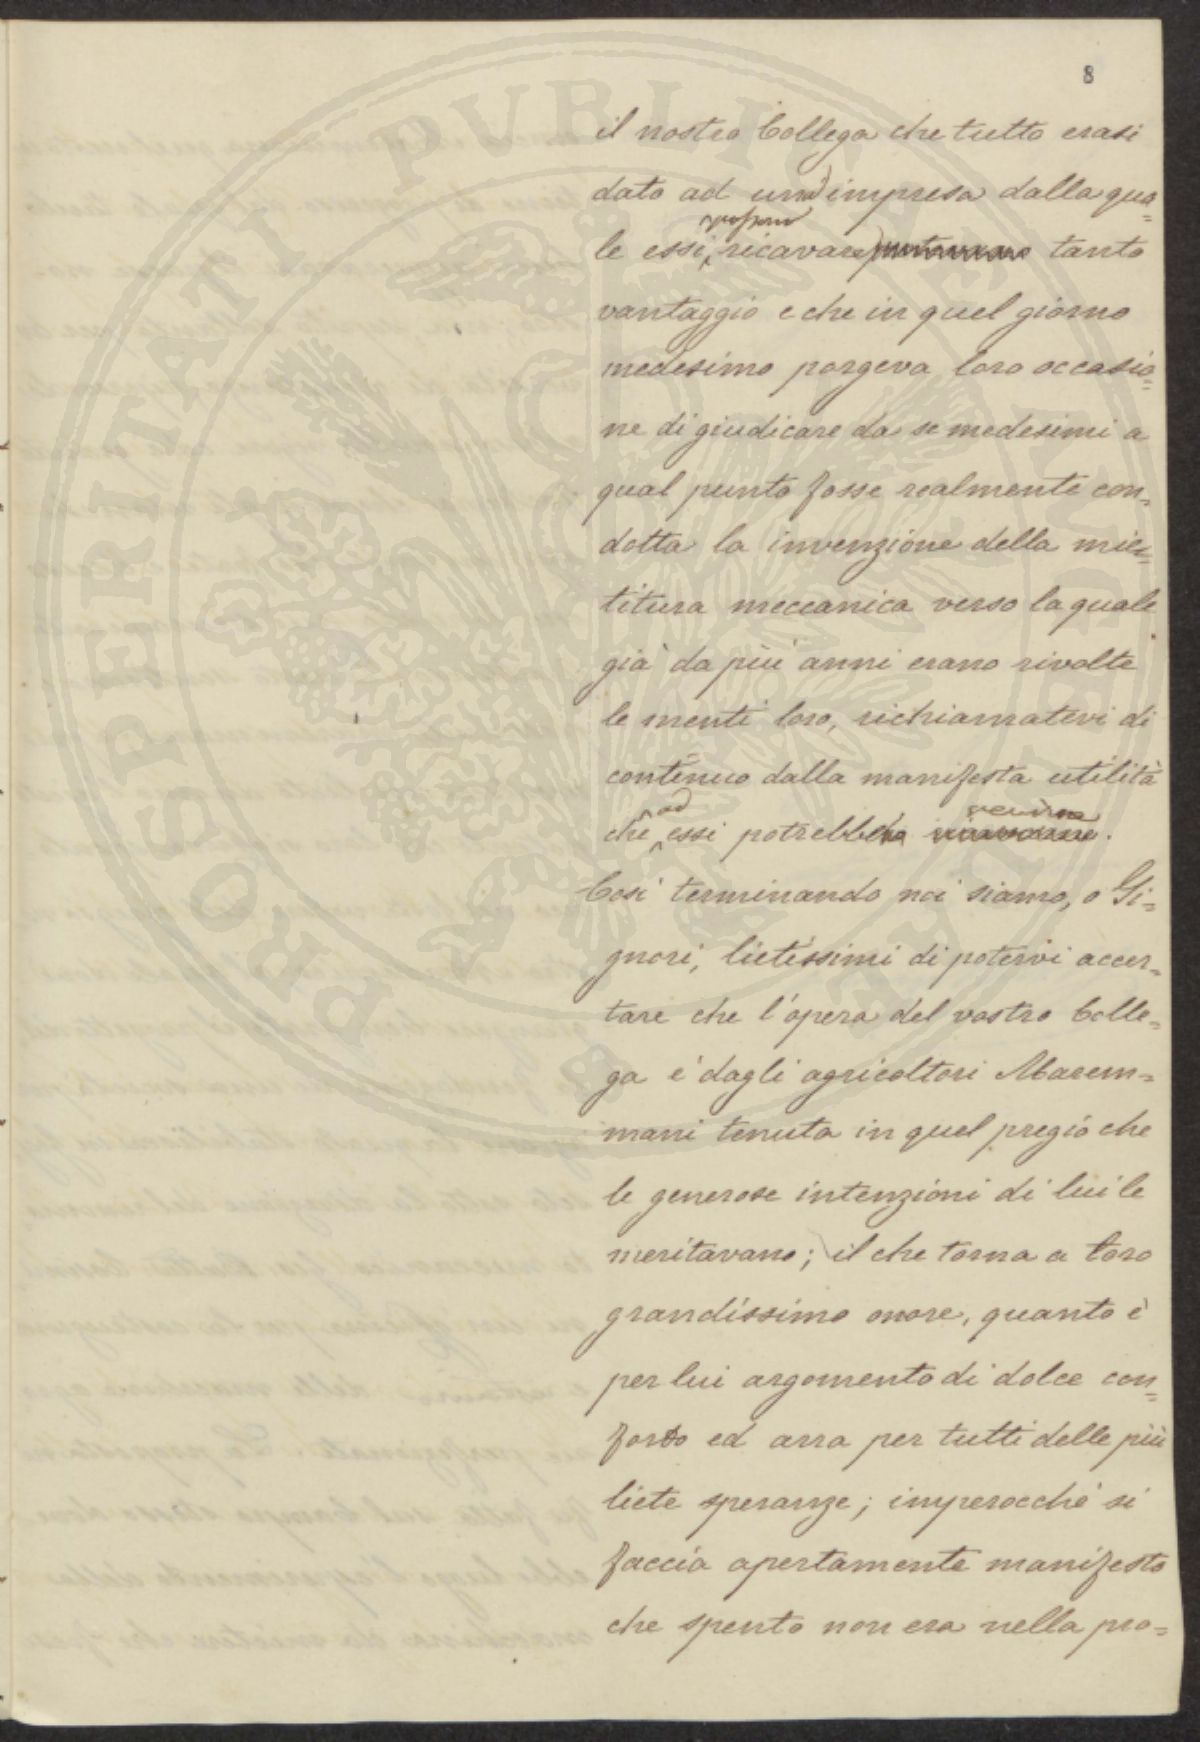 8
PROSPERITATI PUBLICAE AUGENDAE
il nostro Collega che tutto erasi
dato ad un'impresa dalla qua=
le essi possono ricavare potevano tanto
vantaggio e che in quel giorno
medesimo porgeva loro occasio=
ne di giudicare da se medesimi a
qual punto fosse realmente con=
dotta la invenzione della mie=
titura meccanica verso la quale
già da più anni erano rivolte
le menti loro, richiamatevi di
continuo dalla manifesta utilità
che ad essi potrebbe venirne.
Così terminando noi siamo, o Si=
gnori, lietissimi di potervi accer=
tare che l'opera del vostro Colle=
ga è dagli agricoltori Marem=
mani tenuta in quel pregio che
le generose intenzioni di lui le
meritavano; il che torna a loro
grandissimo onore, quanto è
per lui argomento di dolce con=
forto ed arra per tutti delle più
liete speranze; imperocchè si
faccia apertamente manifesto
che spento non era nella pro=